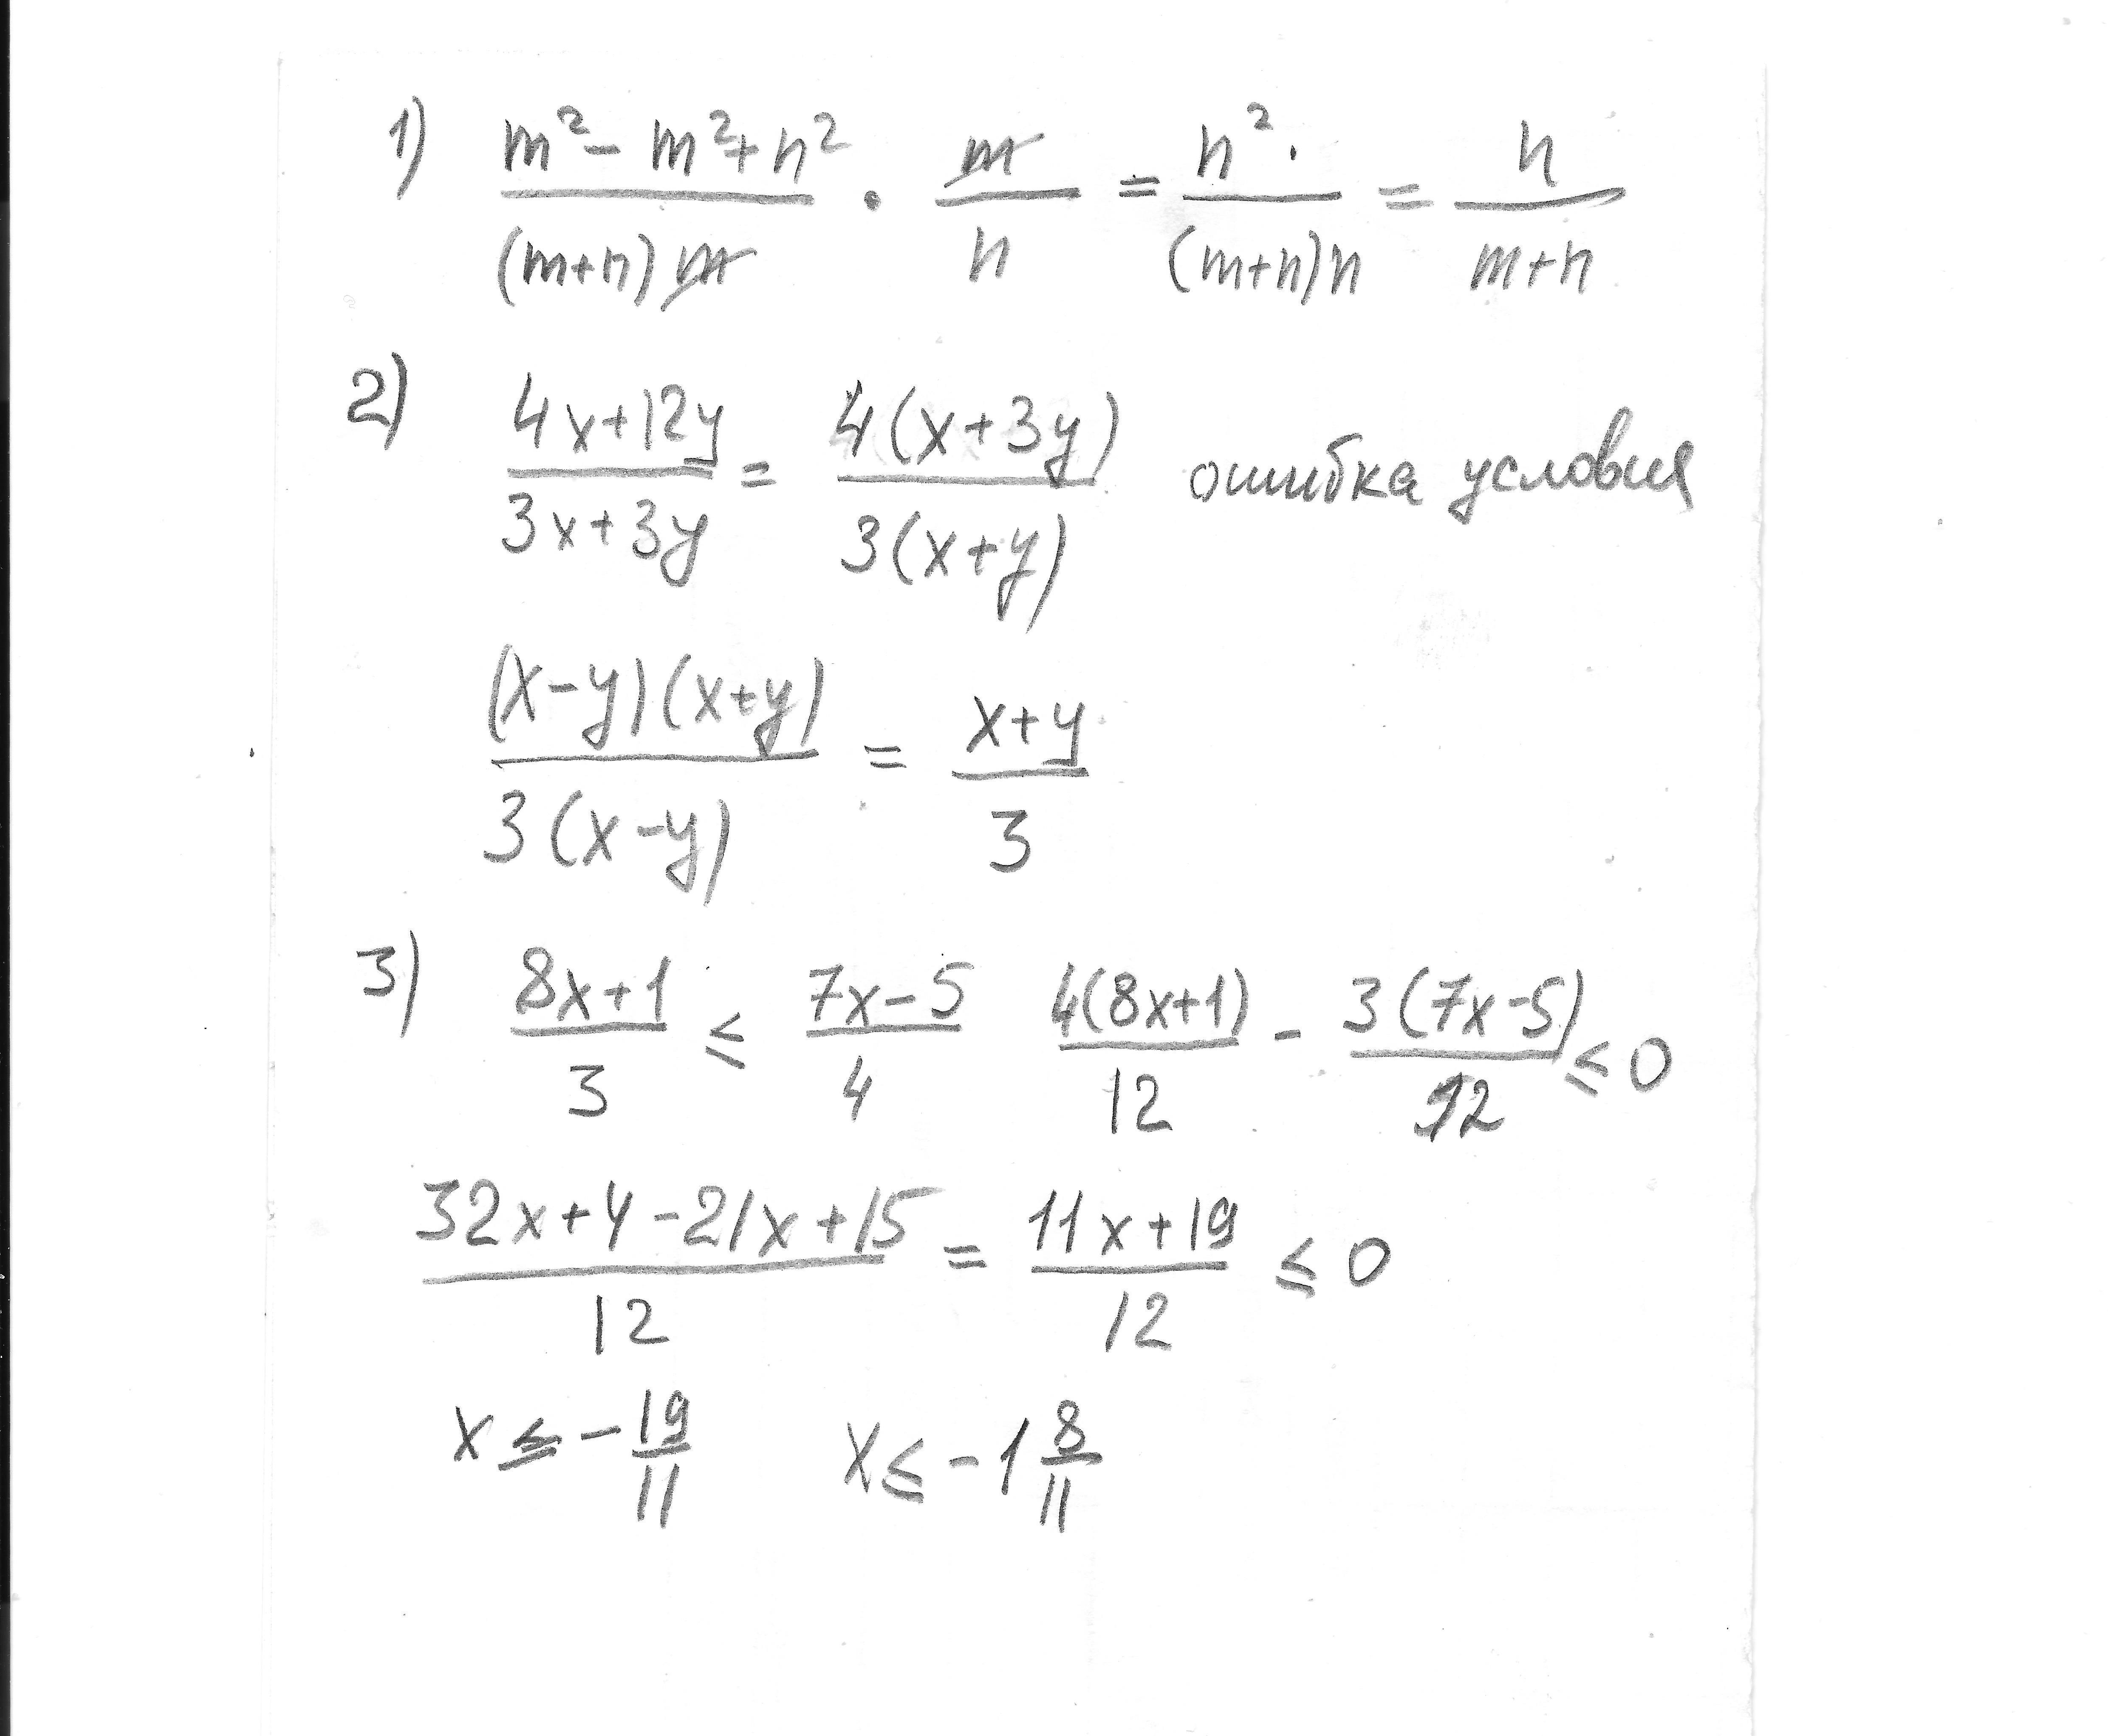 1) (m² - m² + n²)/((m+n)m) · m/n = n²·/((m+n)n) = n/(m+n)
2) (4x+12y)/(3x+3y) = 4(x+3y)/(3(x+y)) ошибка условия
(x-y)(x+y)/(3(x-y)) = (x+y)/3
3) (8x+1)/3 ≤ (7x-5)/4 4(8x+1)/12 - 3(7x-5)/12 ≤ 0
(32x+4-21x+15)/12 = (11x+19)/12 ≤ 0
x ≤ -19/11 x ≤ -1 8/11